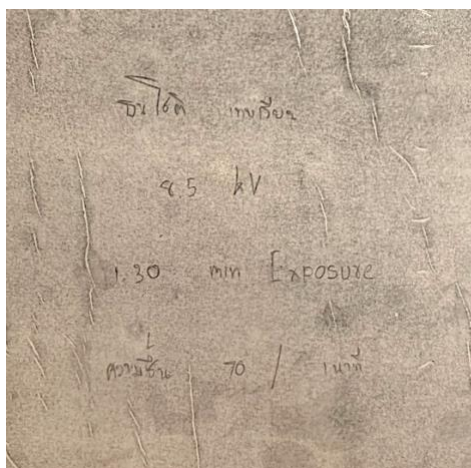 ธนโชติ
8.5 kV
1.30 min Exposure
ความชื้น 70 / 1 นาที